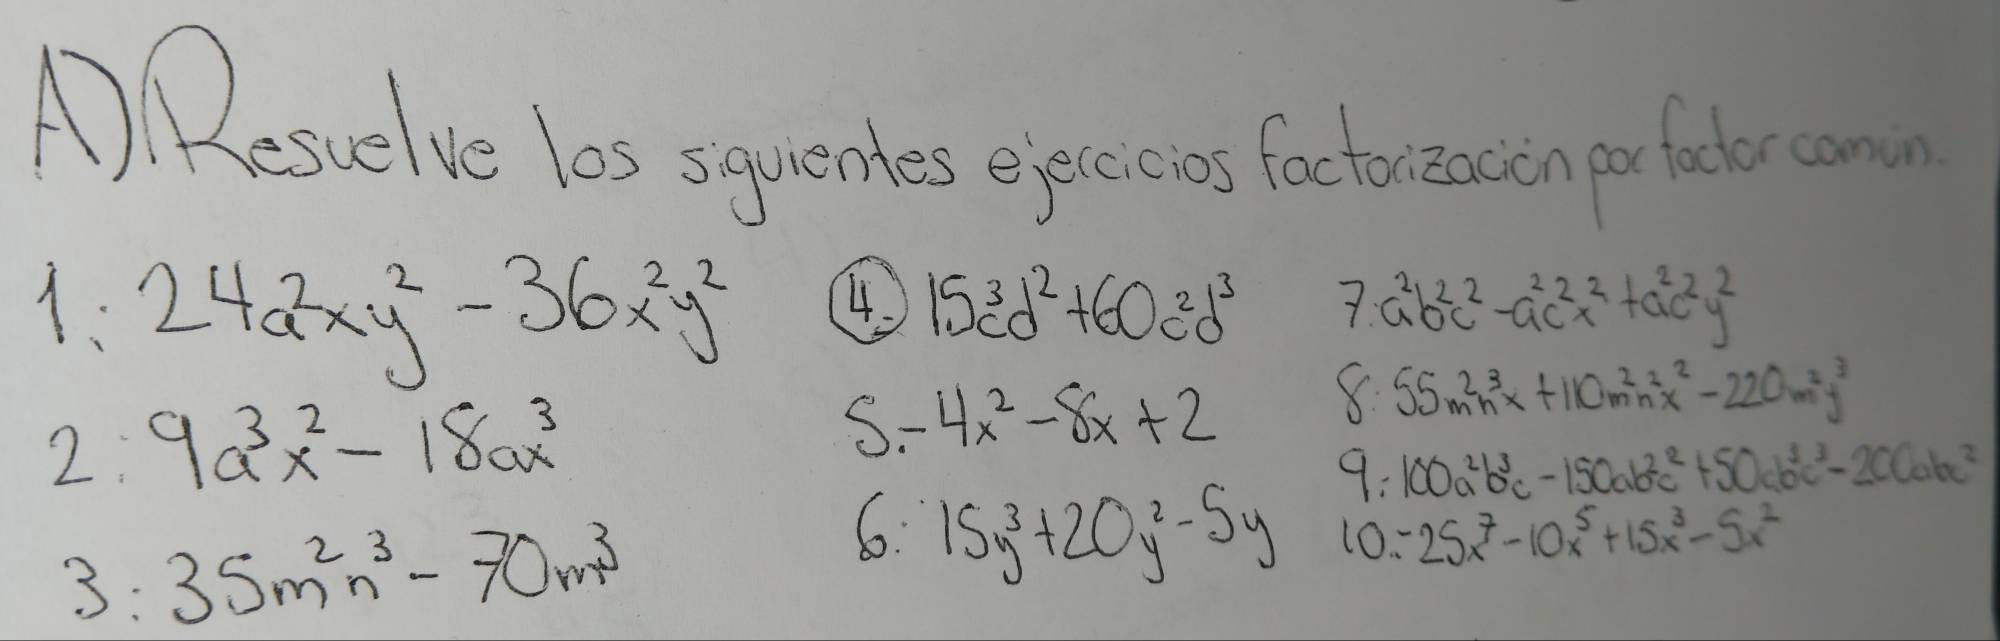 A) Resuelve los siguientes ejercicios factorización por factor común.
1: 24a²xy² - 36x²y²
2: 9a³x² - 18ax³
3: 35m²n³ - 70m³
4. 15c³d² + 60c²d³
5.- 4x² - 8x + 2
6: 15y³ + 20y² - 5y
7: a²b²c² - a²c²x² + a²c²y²
8: 55m²n³x + 110m²n²x² - 220m²y³
9: 100a²b³c - 150ab²c² + 50ab³c³ - 200abc²
10.- 25x⁷ - 10x⁵ + 15x³ - 5x²